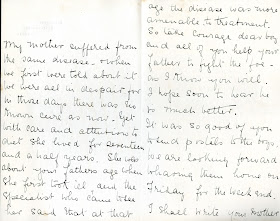 My mother suffered from
the same disease - when
we first were told about it
we were all in despair for
in those days there was no
known cure as now. Yet
with care and attention to
diet she lived for seventeen
and a half years. She was
about your fathers age when
she first took ill and the
Specialist who came to see
her said that at that
age the disease was more
amenable to treatment.
So take Courage dear boy
and all of you help your
father to fight the foe -
as I know you will.
I hope soon to hear he
is much better.
It was so good of you
to send postels to the boys.
We are looking forward
to having them home on
Friday for the week end
I shall write your mother